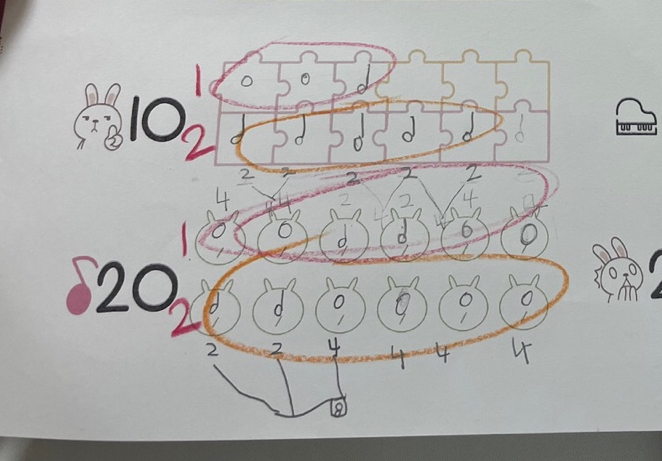 1
10
2
2 2 2 2 2
4 4 2 2 4
1
20
2
2 2 4 4 4 4
8